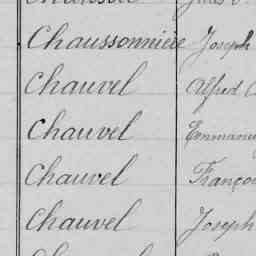 Chaussonnière Joseph
Chauvel Alfred
Chauvel Emmanu
Chauvel Franço
Chauvel Joseph